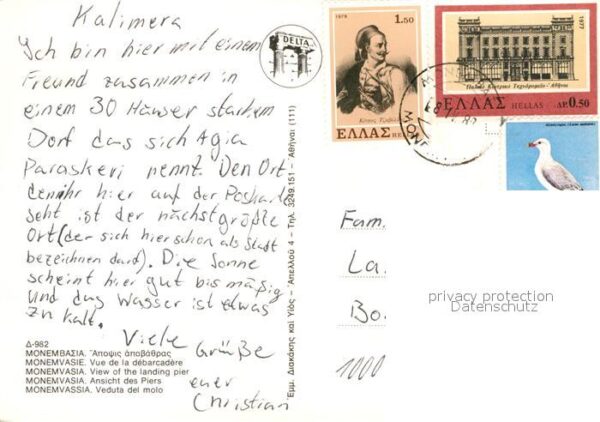 Kalimera
Ich bin hier mit einem
Freund zusammen in
einem 30 Häuser starken
Dorf das sich Agia
Paraskeri nennt. Den Ort
den ihr hier auf der Poskarte
seht ist der nächstgrößte
Ort (der sich hier schon als Stadt
bezeichnen darf). Die Sonne
scheint hier gut bis mäßig
und das Wasser ist etwas
zu kalt.
Viele
Grüße
euer
Christian
Δ-982
ΜΟΝΕΜΒΑΣΙΑ. Ἄποψις ἀποβάθρας
MONEMVASIE. Vue de la débarcadère
MONEMVASIA. View of the landing pier
MONEMVASIA. Ansicht des Piers
MONEMVASSIA. Veduta del molo
DELTA
Ἐμμ. Διακάκης καί Υἱός - Ἀπελλοῦ 4 - Τηλ. 3249.151 - Ἀθῆναι (111)
1979
1.50
ΕΛΛΑΣ
1977
ΕΛΛΑΣ HELLAS ΔΡ.0.50
Fam.
La.
Bo.
1000
privacy protection
Datenschutz